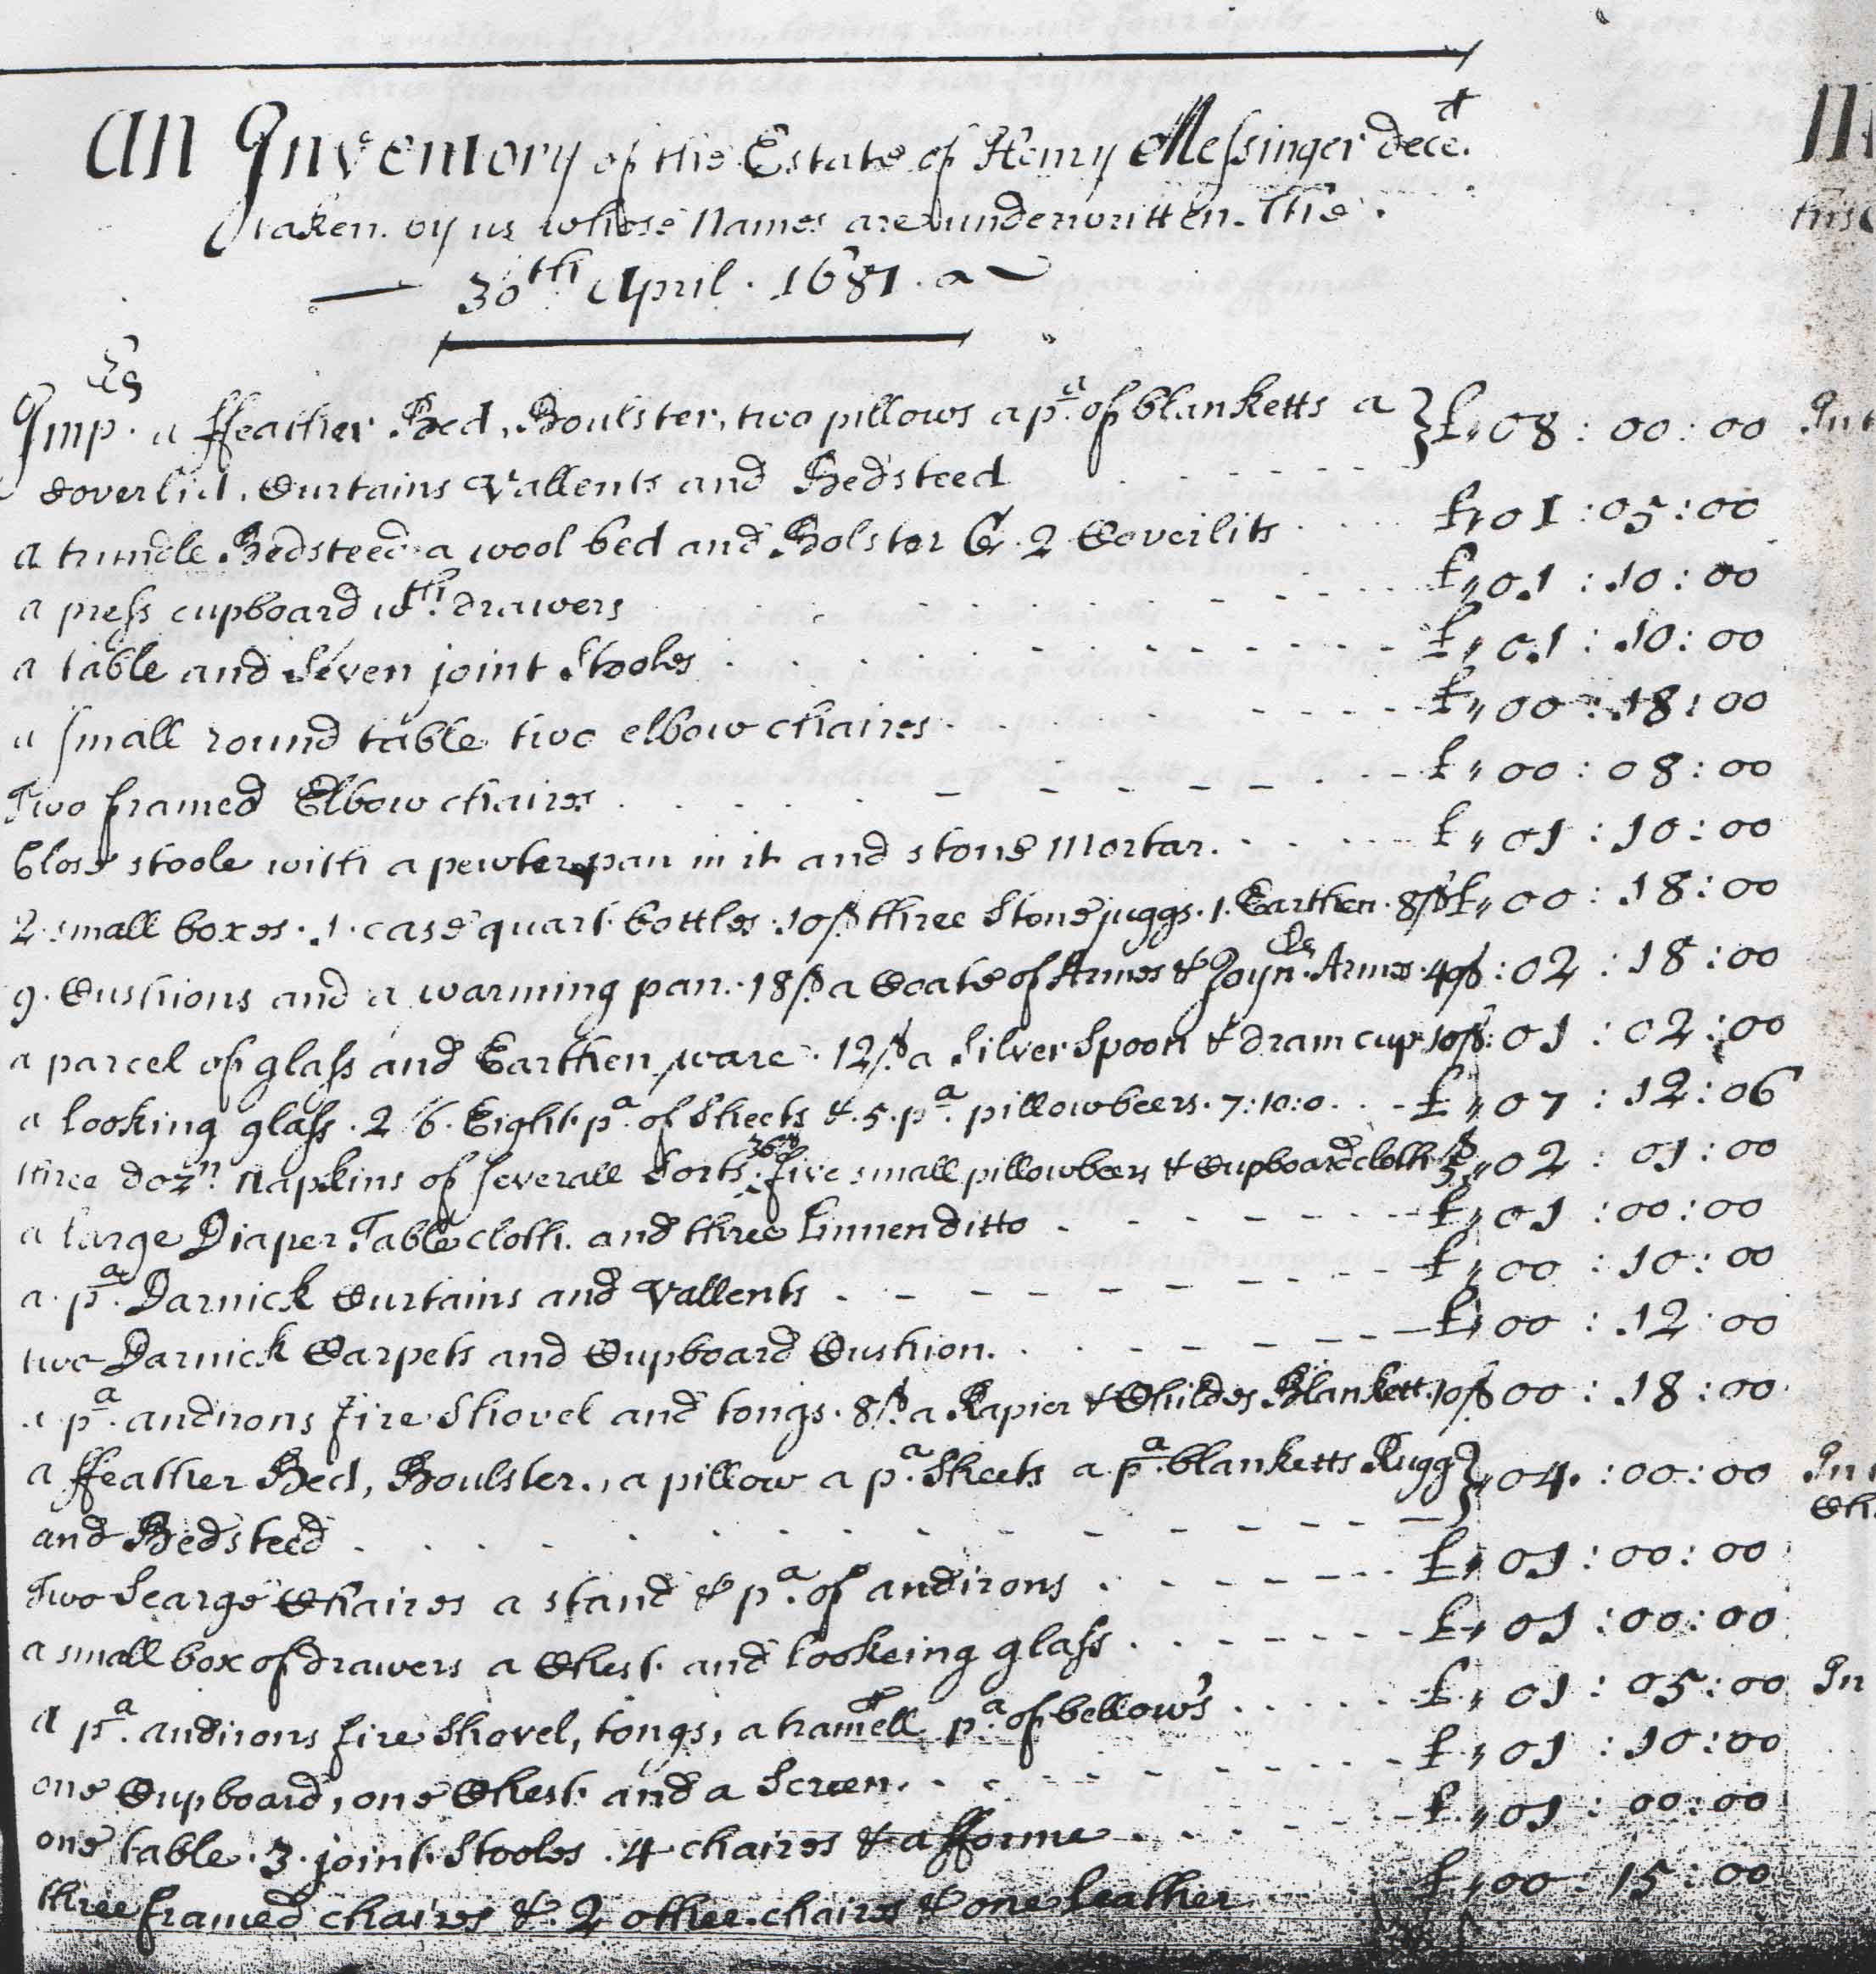 An Inventory of the Estate of Henry Messinger Dece.d
taken by us whose Names are underwritten. The
30th April. 1681.
Imp.rs a ffeather Bed, Boulster, two pillows a p.a of blanketts a } £,, 08 : 00 : 00
Coverlid, Curtains Vallents and Bedsteed
a trundle Bedsteed a wool bed and Bolster & 2 Coverlits £,, 01 : 05 : 00
a press cupboard wth drawers £,, 01 : 10 : 00
a table and Seven joint Stooles £,, 01 : 10 : 00
a small round table two elbow chaires £,, 00 : 18 : 00
Two framed Elbow chaires £,, 00 : 08 : 00
Close stoole with a pewter pan in it and stone Mortar. £,, 01 : 10 : 00
2 small boxes. 1. case quart bottles. 10s three Stone juggs. 1. Earthen. 8s £,, 00 : 18 : 00
9. Cushions and a warming pan. 18s a Coate of Armes & Joyn.rs Armes. 40s : 02 : 18 : 00
a parcel of glass and Earthen ware. 12s a Silver Spoon & dram cup 10s : 01 : 02 : 00
a looking glass. 2 6. Eight p.a of Sheets & 5. p.a pillowbeers. 7:10:0. £,, 07 : 12 : 06
three doz.n Napkins of severall Sorts. 36s five small pillowbeers & Cupboard cloth 5s,, 02 : 01 : 00
a large Diaper Table cloth. and three Linnen ditto £,, 01 : 00 : 00
a p.a Darnick Curtains and Vallents £,, 00 : 10 : 00
two Darnick Carpets and Cupboard Cushion. £,, 00 : 12 : 00
a p.a andirons fire Shovel and tongs. 8s a Rapier & Childes Blankett. 10s 00 : 18 : 00
a ffeather Bed, Boulster, a pillow a p.a Sheets a p.a blanketts Rugg } ,, 04. : 00 : 00
and Bedsteed
Two Searge Chaires a stand & p.a of andirons £,, 01 : 00 : 00
a small box of drawers a Chest and lookeing glass £,, 01 : 00 : 00
a p.a andirons fire Shovel, tongs, a tramell p.a of bellows £,, 01 : 05 : 00
one Cupboard, one Chest and a Screen. £,, 01 : 10 : 00
one table. 3. joint Stooles. 4 chaires & a fforme £,, 01 : 00 : 00
three framed chairs & 2 other chairs & one leather £,, 00 : 15 : 00